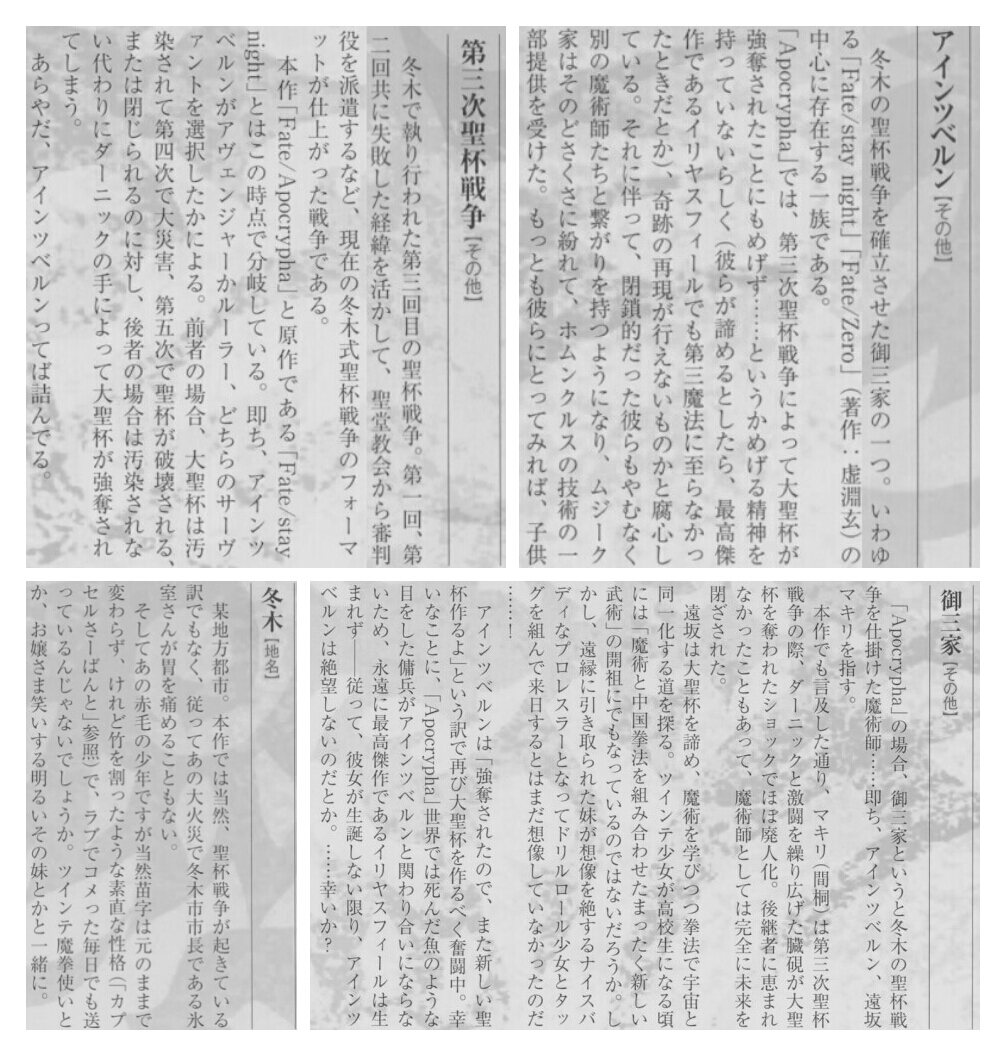 アインツベルン【その他】
冬木の聖杯戦争を確立させた御三家の一つ。いわゆ
る「Fate/stay night」「Fate/Zero」（著作：虚淵玄）の
中心に存在する一族である。
「Apocrypha」では、第三次聖杯戦争によって大聖杯が
強奪されたことにもめげず……というかめげる精神を
持っていないらしく（彼らが諦めるとしたら、最高傑
作であるイリヤスフィールでも第三魔法に至らなかっ
たときだとか）、奇跡の再現が行えないものかと腐心し
ている。それに伴って、閉鎖的だった彼らもやむなく
別の魔術師たちと繋がりを持つようになり、ムジーク
家はそのどさくさに紛れて、ホムンクルスの技術の一
部提供を受けた。もっとも彼らにとってみれば、子供
第三次聖杯戦争【その他】
冬木で執り行われた第三回目の聖杯戦争。第一回、第
二回共に失敗した経緯を活かして、聖堂教会から審判
役を派遣するなど、現在の冬木式聖杯戦争のフォーマ
ットが仕上がった戦争である。
本作「Fate/Apocrypha」と原作である「Fate/stay
night」とはこの時点で分岐している。即ち、アインツ
ベルンがアヴェンジャーかルーラー、どちらのサーヴ
ァントを選択したかによる。前者の場合、大聖杯は汚
染されて第四次で大災害、第五次で聖杯が破壊される、
または閉じられるのに対し、後者の場合は汚染されな
い代わりにダーニックの手によって大聖杯が強奪され
てしまう。
あらやだ、アインツベルンってば詰んでる。
御三家【その他】
「Apocrypha」の場合、御三家というと冬木の聖杯戦
争を仕掛けた魔術師……即ち、アインツベルン、遠坂
マキリを指す。
本作でも言及した通り、マキリ（間桐）は第三次聖杯
戦争の際、ダーニックと激闘を繰り広げた臓硯が大聖
杯を奪われたショックでほぼ廃人化。後継者に恵まれ
なかったこともあって、魔術師としては完全に未来を
閉ざされた。
遠坂は大聖杯を諦め、魔術を学びつつ拳法で宇宙と
同一化する道を探る。ツインテ少女が高校生になる頃
には「魔術と中国拳法を組み合わせたまったく新しい
武術」の開祖にでもなっているのではないだろうか。し
かし、遠縁に引き取られた妹が想像を絶するナイスバ
ディなプロレスラーとなってドリルロール少女とタッ
グを組んで来日するとはまだ想像していなかったのだ
……！
アインツベルンは「強奪されたので、また新しい聖
杯作るよ」という訳で再び大聖杯を作るべく奮闘中。幸
いなことに、「Apocrypha」世界では死んだ魚のような
目をした傭兵がアインツベルンと関わり合いにならな
いため、永遠に最高傑作であるイリヤスフィールは生
まれず　従って、彼女が生誕しない限り、アインツ
ベルンは絶望しないのだとか。……幸いか？
冬木【地名】
某地方都市。本作では当然、聖杯戦争が起きている
訳でもなく、従ってあの大火災で冬木市市長である氷
室さんが胃を痛めることもない。
そしてあの赤毛の少年ですが当然苗字は元のままで
変わらず、けれど竹を割ったような素直な性格（「カプ
セルさーばんと」参照）で、ラブでコメった毎日でも送
っているんじゃないでしょうか　ツインテ魔拳使いと
か、お嬢さま笑いする明るいその妹とかと一緒に。